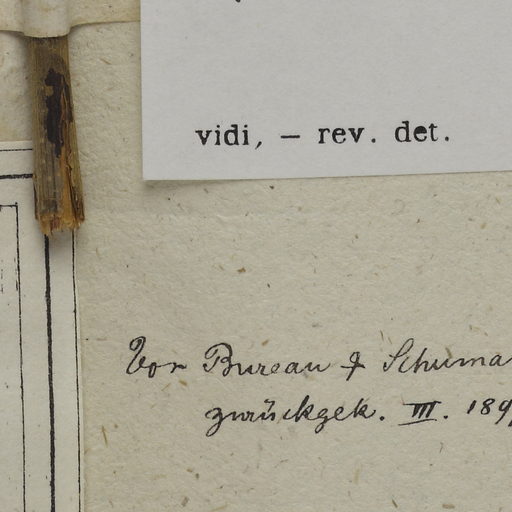 vidi, — rev. det.
Von Bureau & Schuma
zurückgek. III. 189